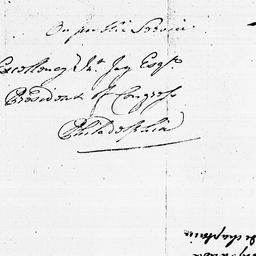 On public Service
Excellency Jnº Jay Esqr.
President of Congress
Philadelphia